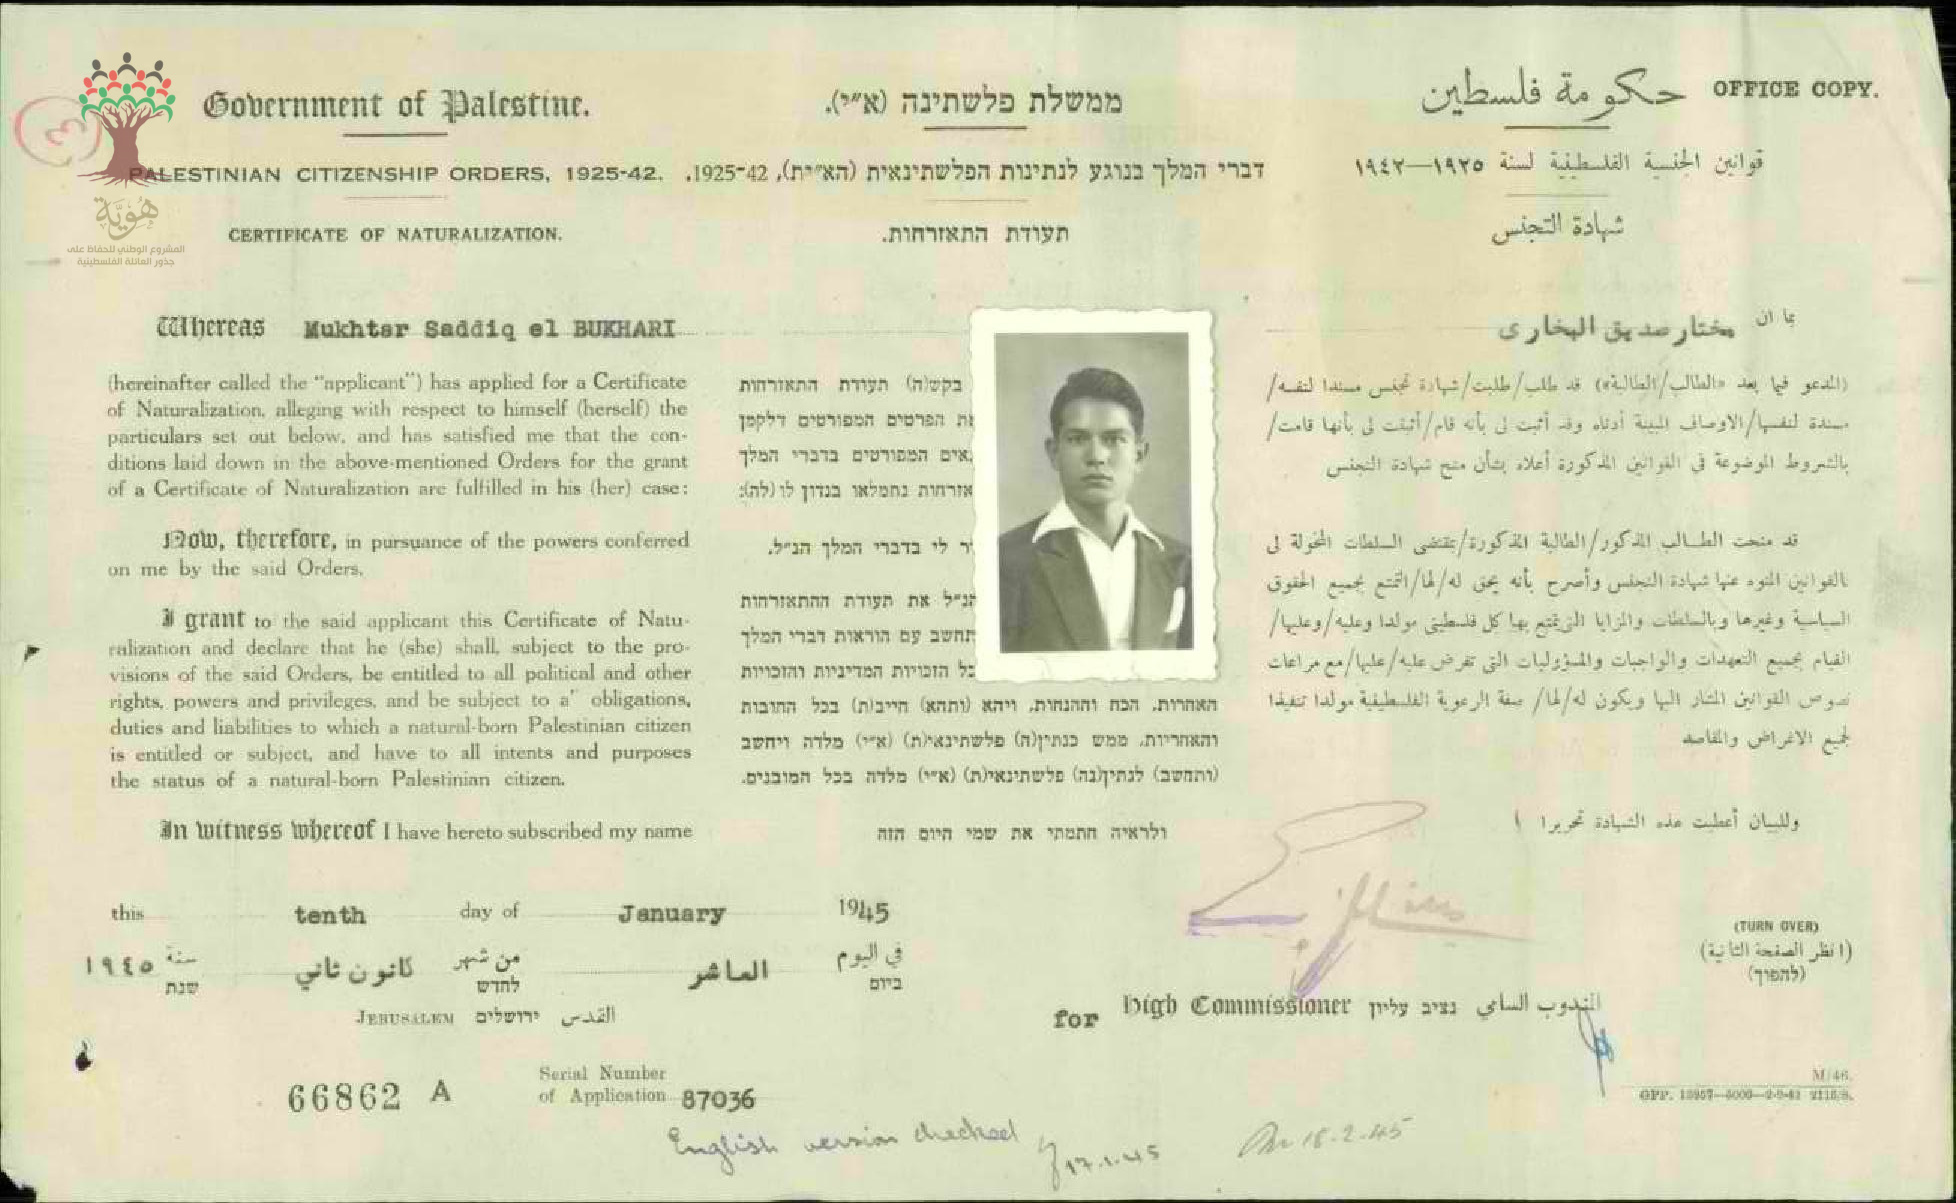 Government of Palestine.
ממשלת פלשתינה (א״י).
حكومة فلسطين
OFFICE COPY.
PALESTINIAN CITIZENSHIP ORDERS, 1925-42.
דברי המלך בנוגע לנתינות הפלשתינאית (הא״ית), 1925-42.
قوانين الجنسية الفلسطينية لسنة ١٩٢٥—١٩٤٢
CERTIFICATE OF NATURALIZATION.
תעודת התאזרחות.
شهادة التجنس
هُوِيَّة
المشروع الوطني للحفاظ على
جذور العائلة الفلسطينية
Whereas Mukhtar Saddiq el BUKHARI
(hereinafter called the "applicant") has applied for a Certificate
of Naturalization, alleging with respect to himself (herself) the
particulars set out below, and has satisfied me that the con-
ditions laid down in the above-mentioned Orders for the grant
of a Certificate of Naturalization are fulfilled in his (her) case:
Now, therefore, in pursuance of the powers conferred
on me by the said Orders,
I grant to the said applicant this Certificate of Natu-
ralization and declare that he (she) shall, subject to the pro-
visions of the said Orders, be entitled to all political and other
rights, powers and privileges, and be subject to a' obligations,
duties and liabilities to which a natural-born Palestinian citizen
is entitled or subject, and have to all intents and purposes
the status of a natural-born Palestinian citizen.
In witness whereof I have hereto subscribed my name
בקש(ה) תעודת התאזרחות
הפרטים המפורטים דלקמן
המפורטים בדברי המלך
אזרחות נתמלאו בנדון לו (לה):
לי בדברי המלך הנ״ל,
הנ״ל את תעודת ההתאזרחות
ותחשב עם הוראות דברי המלך
כל הזכויות המדיניות והזכויות
האחרות, הכח וההנחות, ויהא (ותהא) חייב(ת) בכל החובות
והאחריות, ממש כנתין(ה) פלשתינאי(ת) (א״י) מלדה ויחשב
(ותחשב) לנתין(נה) פלשתינאי(ת) (א״י) מלדה בכל המובנים.
ולראיה חתמתי את שמי היום הזה
بما ان مختار صديق البخاري
(المدعو فيما بعد «الطالب/الطالبة») قد طلب/طلبت/شهادة تجنس مسندا لنفسه/
مسندة لنفسها/الاوصاف المبينة أدناه وقد أثبت لي بأنه قام/أثبتت لي بأنها قامت/
بالشروط الموضوعة في القوانين المذكورة أعلاه بشأن منح شهادة التجنس
قد منحت الطالب المذكور/الطالبة المذكورة/بمقتضى السلطات المخولة لي
بالقوانين المنوه عنها شهادة التجنس وأصرح بأنه يحق له/لها/التمتع بجميع الحقوق
السياسية وغيرها وبالسلطات والمزايا التي يتمتع بها كل فلسطيني مولدا وعليه/وعليها/
القيام بجميع التعهدات والواجبات والمسؤوليات التي تفرض عليه/عليها/مع مراعات
نصوص القوانين المشار اليها ويكون له/لها/ صفة الرعوية الفلسطينية مولدا تنفيذا
لجميع الاغراض والمقاصد
وللبيان أعطيت هذه الشهادة تحريرا
this tenth day of January 1945
في اليوم العاشر من شهر كانون ثاني سنة ١٩٤٥
ביום לחדש שנת
JERUSALEM ירושלים القدس
for High Commissioner נציב עליון المندوب السامي
(TURN OVER)
(انظر الصفحة الثانية)
(להפוך)
66862 A
Serial Number
of Application 87036
M/46.
GPP. 13957—5000—2-9-43 2116/S.
English version checked
17.1.45
18.2.45